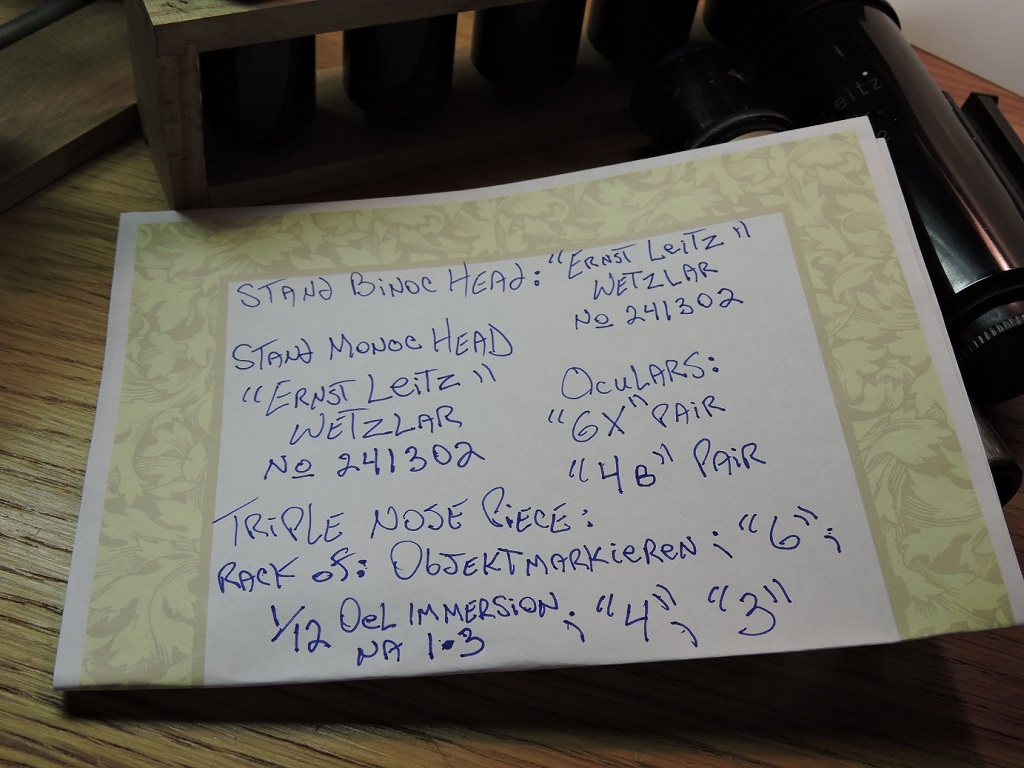 STAND BINOC HEAD: "ERNST LEITZ"
WETZLAR
No 241302
STAND MONOC HEAD
"ERNST LEITZ"
WETZLAR
No 241302
OCULARS:
"6X" PAIR
"4B" PAIR
TRIPLE NOSE PIECE:
RACK of: OBJEKTMARKIEREN; "6";
1/12 OEL IMMERSION; "4"; "3"
NA 1.3
eitz